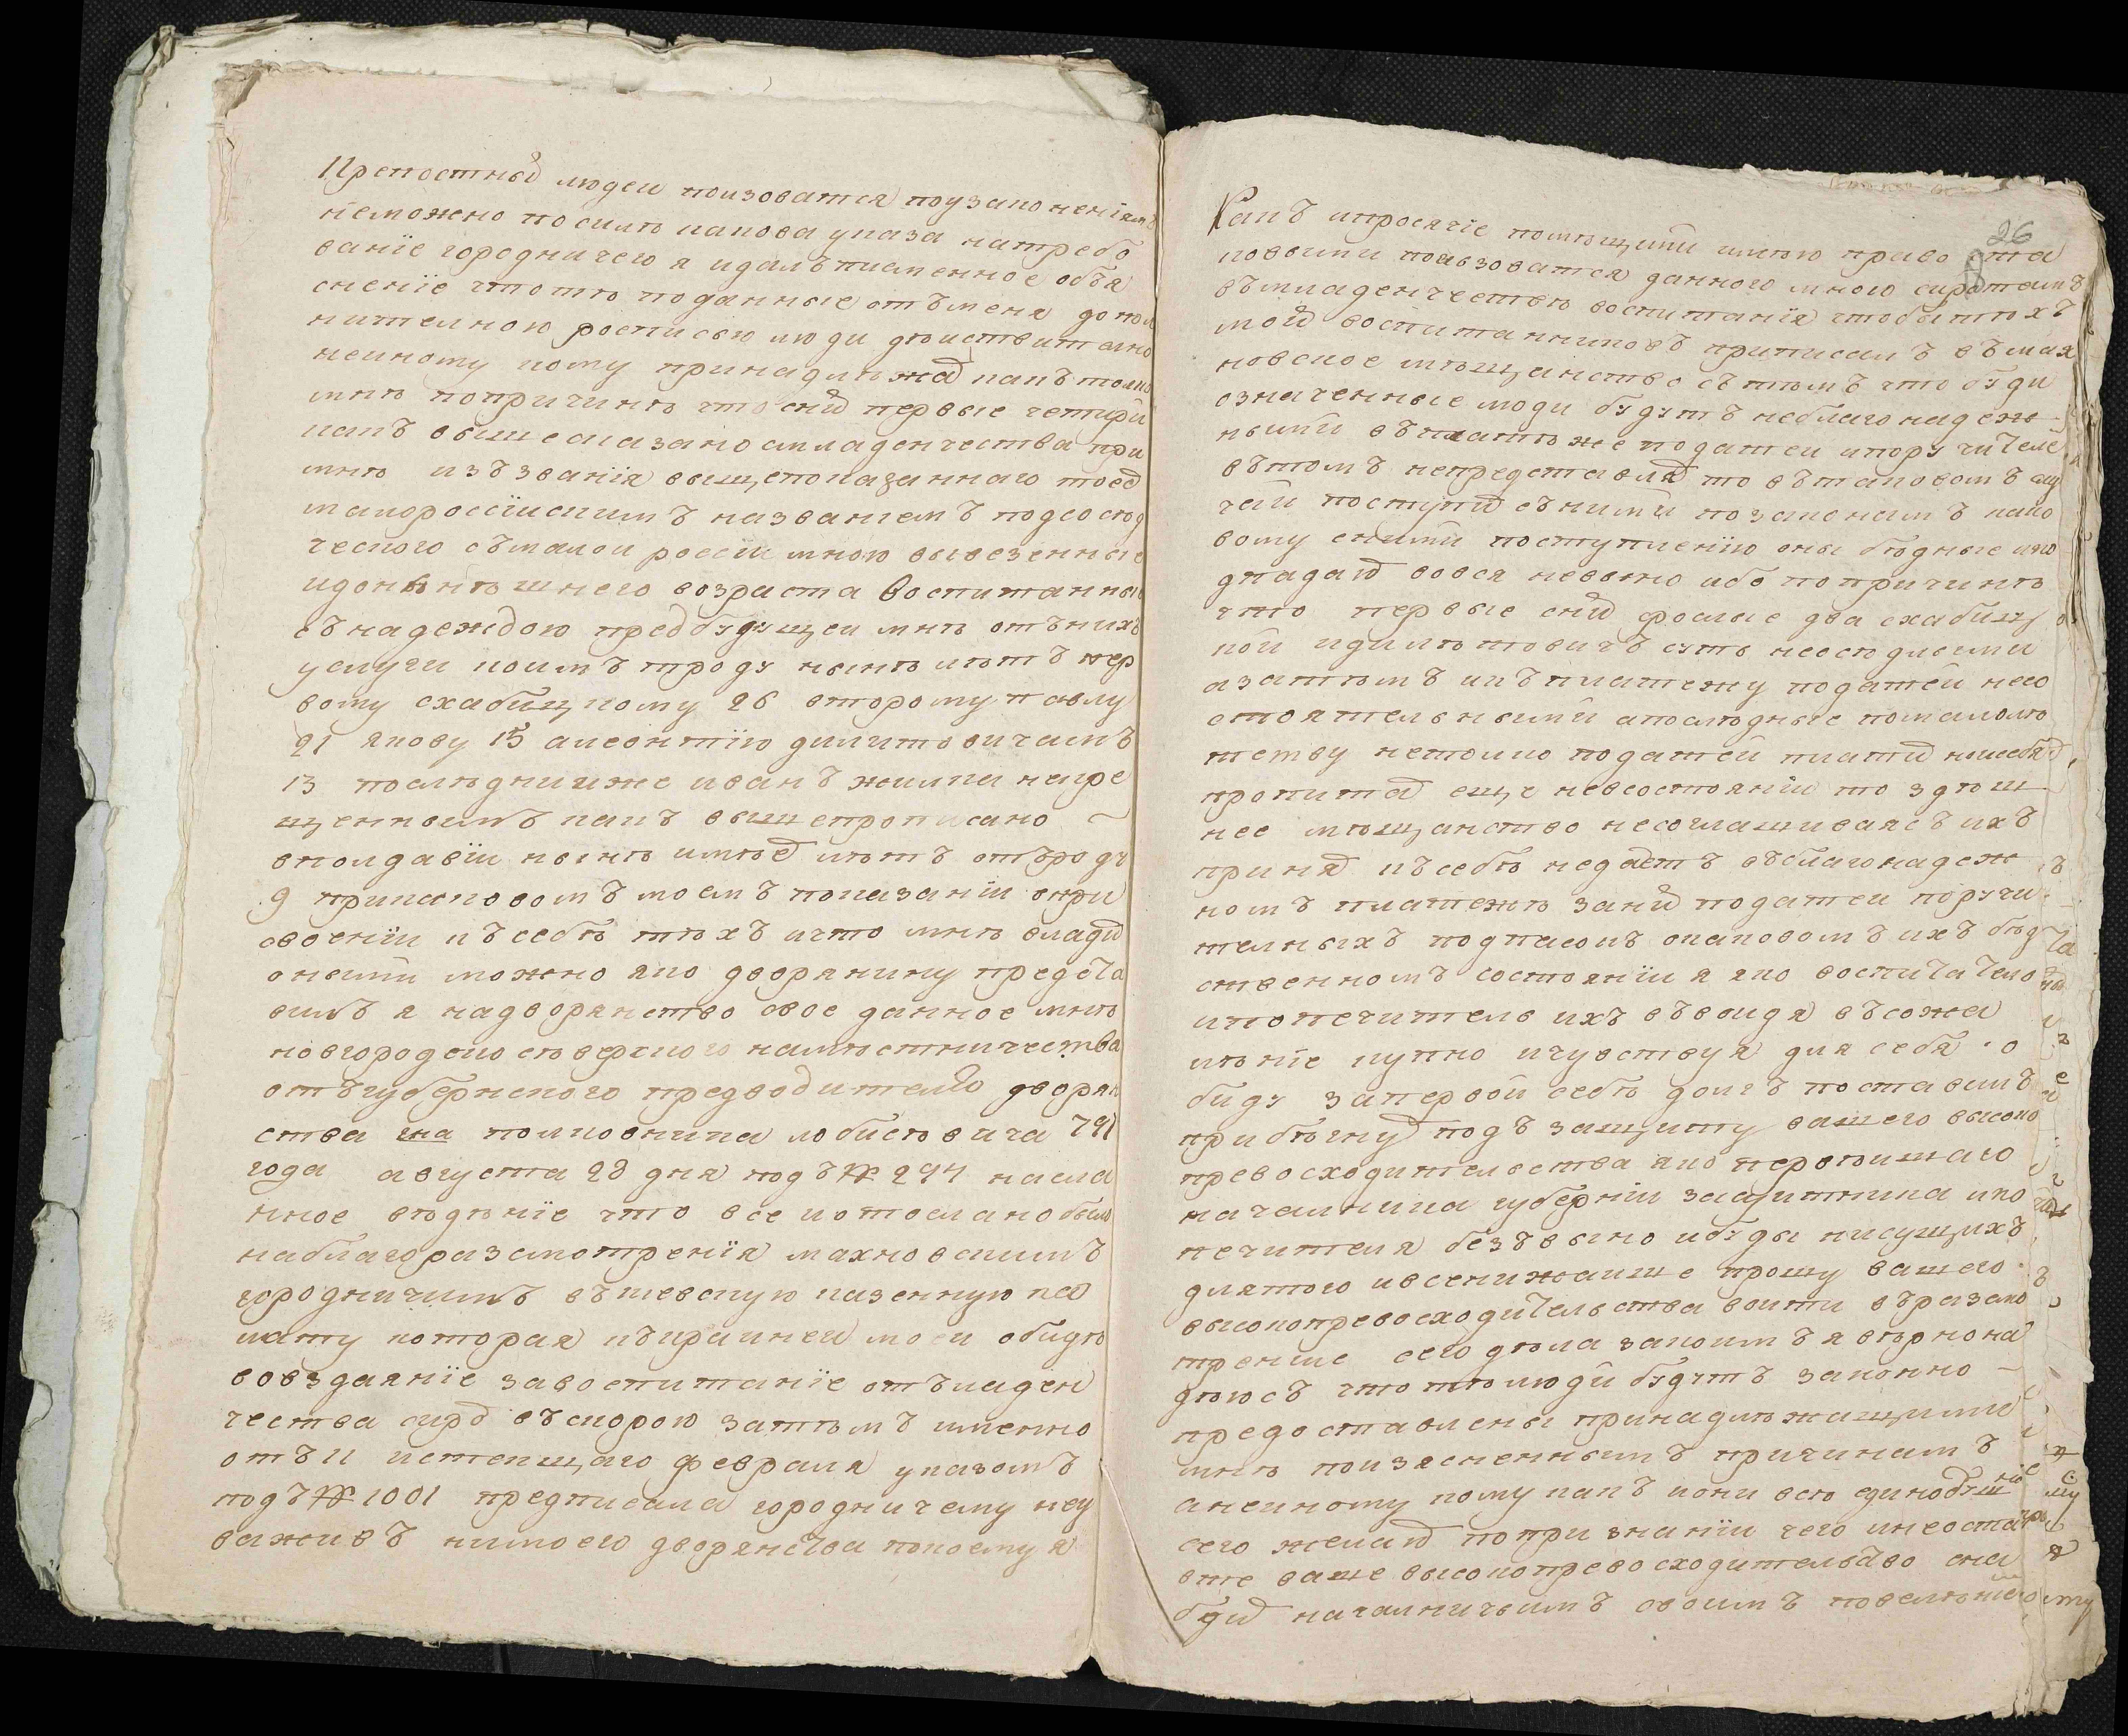 крепостныхъ людеи ползоватся поузаконениямъ
неможно посилѣ какова указа натребо
ваніе городничего я идалъ писменное объя
снение что тѣ поданные отъменя допол
нителною росписью люди дѣиствително
неиному кому принадлѣжатъ какъ толко
мнѣ попричинѣ что сихъ первые четири
какъ вышесказано смладенчества при
мнѣ изъзвания вышепоказаннаго тоестъ
малороссіискимъ названіемъ подсосѣд
ческого съмалои россіи мною вывезенные
идонынѣшнего возраста воспитанные
съ надеждою предбудущеи мнѣ отънихъ
услуги коимъ отроду нынѣ лѣтъ пер
вому схабицкому 26 второму павлу
21 якову 15 алеонтию дилитовичамъ
13 послѣднииже иванъ жилка нагре
щенныимъ какъ вышепрописано ~
вмолдавіи нынѣ имѣетъ лѣтъ отъроду
9 притаковомъ моемъ показаніи опри
своеніи ксебѣ тѣхъ ичто мнѣ владѣть
оными можно яко дворянину предста
вилъ я надворянство свое данное мнѣ
новгородско сѣверского намѣстничества
отъгубернского предводителя дворян
ства гна полковника лобисѣвича 791
года августа 28 дня подъ № 294 насла
нное вѣдѣніе что все котослано было
наблагоразсмотренія махновскимъ
городничимъ въкиевскую казенную па
лату которая къкраинеи моеи обидѣ
вовздаяніе завоспитаніе отъмладен
чества сиротъ въскорою затѣмъ именно
отъ 11 истекщаго февраля указомъ
подъ № 1001 предписала городничему неу
важивъ нимоего дворянства покоему я
26
какъ ипросячіе помѣщики имѣю право та
ковыми ползоватся данного мною сиротамъ
въмладенчествѣ воспитанія чтобы тѣхъ
моихъ воспитанниковъ приписалъ въмах
новское мѣщанство сътѣмъ что буди
означенные люди будутъ неблагонадеж
ными въплатѣже податеи ипоручителеи
въ томъ непредставлятъ то въ таковомъ слу
чаи поступитъ сними позаконамъ како
вому сними поступлению оны бѣдные яко
впадаютъ вовся невынно ибо попричинѣ
что первые сихъ рослые два схабицъ
кои идилитовичъ суть неосѣдлыми
азатѣмъ икъплатежу податеи несо
стоятельными апослѣдные помалолѣ
тству нетолко податеи платить нисебя
пропитать еще невсостоянии то здѣш
нее мѣщанство несоглашиваясъ ихъ
принять ксебѣ недаетъ въблагонадеж
номъ платежѣ занихъ податеи поручи
телныхъ подписокъ отаковомъ ихъ бѣд
ственномъ состояніи я яко воспитатель
ипопечитель ихъ въвоидя въсожа
лѣніе купно ичувствуя для себя о
биду запервои себѣ долгъ поставилъ
прибѣгнуть подъ защиту вашего высоко
превосходителства яко первѣишаго
началника губерніи защитника ипо
печителя безъвынно убѣды несущихъ
длятого ивсенижаише прошу вашего
высокопревосходительства воити въразсмо
трение сего дѣла закоимъ я вѣрно на
дѣюсъ что тѣ люди будутъ законно ~
предоставлены принадлѣжащими
мнѣ поизясненнымъ причинамъ
анеиному кому какъ иони всѣ единодуш
сего желаютъ попризнаніи чего инеостав
вте ваше высокопревосходительство сна
бдить началничьимъ своимъ повелѣніемъ